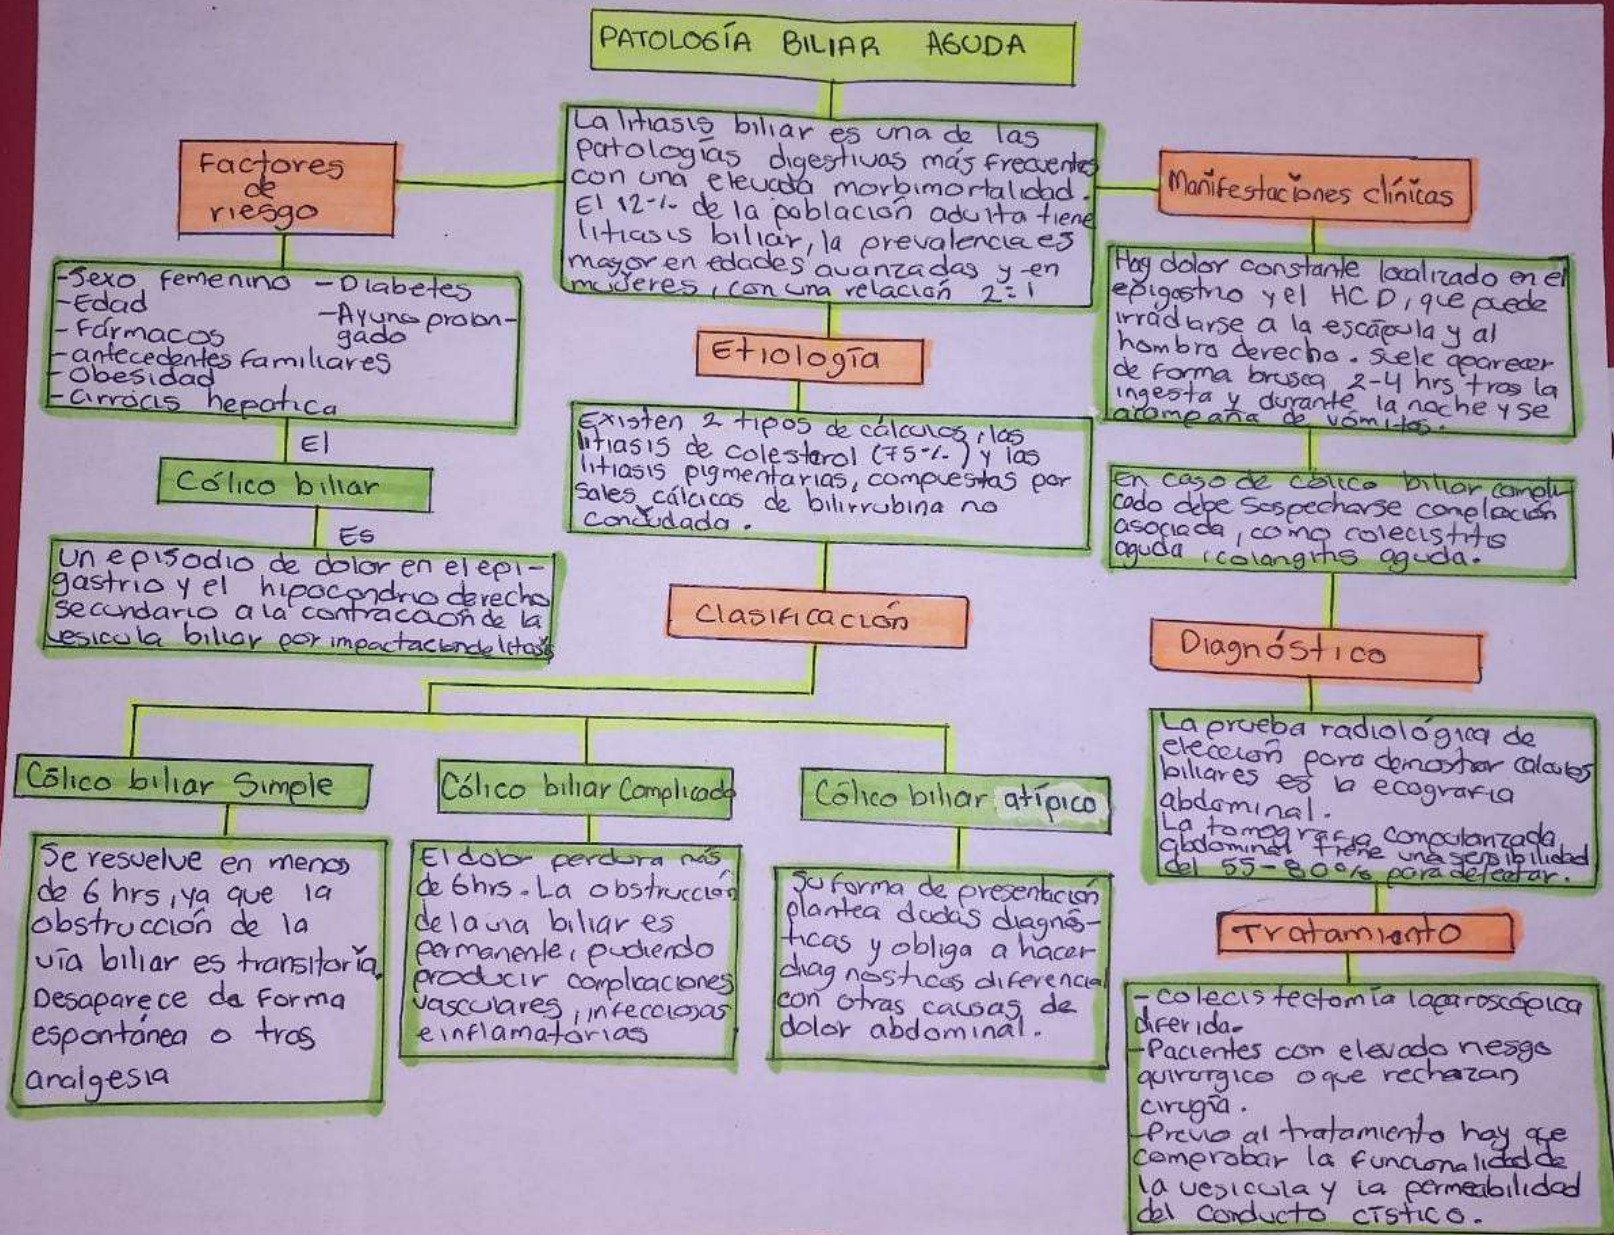 PATOLOGÍA BILIAR AGUDA
La litiasis biliar es una de las
patologías digestivas más frecuentes
con una elevada morbimortalidad.
El 12% de la población adulta tiene
litiasis biliar, la prevalencia es
mayor en edades avanzadas y en
mujeres, con una relación 2:1
Factores
de
riesgo
-Sexo femenino -Diabetes
-Edad
-Ayuno prolon-
-Fármacos
gado
-antecedentes familiares
-Obesidad
-cirrocis hepatica
El
Cólico biliar
Es
Un episodio de dolor en el epi-
gastrio y el hipocondrio derecho
secundario a la contracción de la
vesicula biliar por impactación de litasis
Etiología
Existen 2 tipos de cálculos, las
litiasis de colesterol (75%) y las
litiasis pigmentarias, compuestas por
sales cálcicas de bilirrubina no
Clasificación
Cólico biliar Simple
Se resuelve en menos
de 6 hrs, ya que la
obstrucción de la
vía biliar es transitoria,
Desaparece de forma
espontánea o tras
analgesia
Cólico biliar Complicado
El dolor perdura más
de 6hrs. La obstrucción
de la via biliar es
permanente, pudiendo
producir complicaciones
vasculares, infecciosas
e inflamatorias
Cólico biliar atípico
Su forma de presentación
plantea dudas diagnós-
ticas y obliga a hacer
diagnosticos diferencial
con otras causas de
dolor abdominal.
Manifestaciones clínicas
Hay dolor constante localizado en el
epigastrio y el HCD, que puede
irradiarse a la escápula y al
hombro derecho. Suele aparecer
de forma brusca, 2-4 hrs tras la
ingesta y durante la noche y se
acompaña de vómitos.
En caso de cólico biliar compli
cado debe sospecharse
asociada, como colecistitis
aguda, colangitis aguda.
Diagnóstico
La prueba radiológica de
elección para demostrar calculos
biliares es la ecografía
abdominal.
La tomografía
abdominal tiene una sensibilidad
del 55-80% para detectar.
Tratamiento
-Colecistectomía laparoscópica
diferida.
-Pacientes con elevado riesgo
quirurgico o que rechazan
cirugía.
-Previo al tratamiento hay que
comprobar la funcionalidad de
la vesicula y la permeabilidad
del conducto cístico.